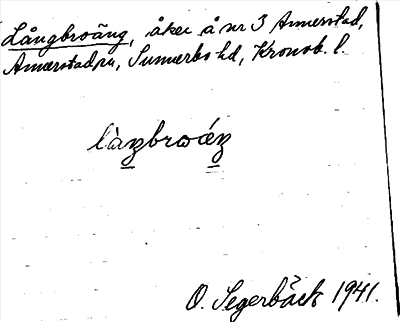 Långbroäng, åker å nr 3 Annerstad,
Annerstad sn, Sunnerbo hd, Kronob. l.
làŋbrωáŋ
O. Segerbäck 1941.